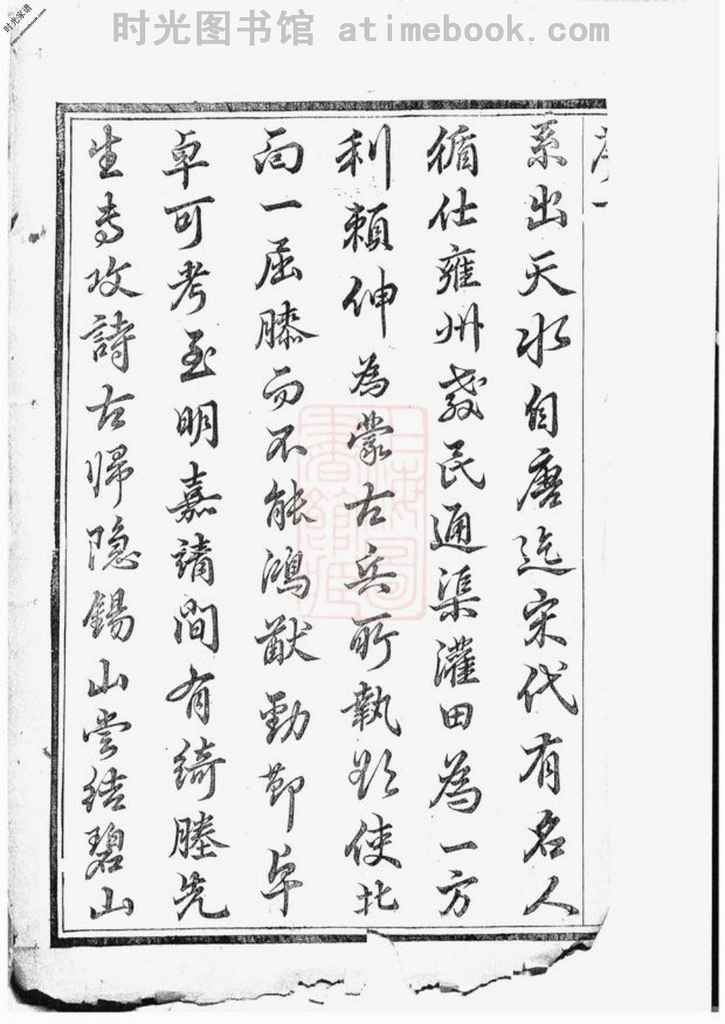 时光图书馆 atimebook.com
时光家谱
系出天水自唐迄宋代有名人
循仕雍州教民通渠灌田為一方
利賴伸為蒙古兵所執欲使北
面一屈膝而不能鴻猷勁節卓
卓可考至明嘉靖間有綺塍先
生專攻詩古歸隱錫山嘗結碧山